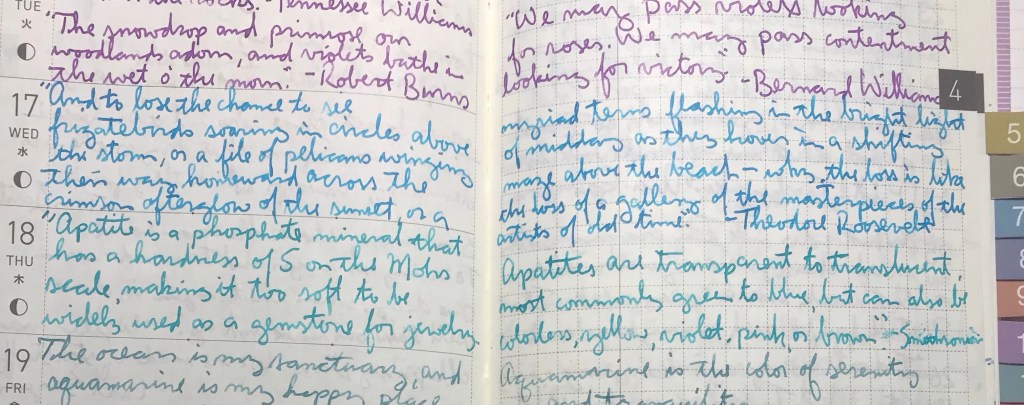 TUE
火
and                    . - Tennessee Williams
"The snowdrop and primrose our
woodlands adorn, and violets bathe in
the wet o' the morn." - Robert Burns
17
WED
水
"And to lose the chance to see
frigatebirds soaring in circles above
the storm, or a file of pelicans winging
their way homeward across the
crimson afterglow of the sunset, or a
18
THU
木
"Apatite is a phosphate mineral that
has a hardness of 5 on the Mohs
scale, making it too soft to be
widely used as a gemstone for jewelry.
19
FRI
The ocean is my sanctuary, and
aquamarine is my happy place
"We may pass violets looking
for roses. We may pass contentment
looking for victory." - Bernard Williams
myriad terns flashing in the bright light
of midday as they hover in a shifting
maze above the beach - why, the loss is like
the loss of a gallery of the masterpieces of the
artists of old time." - Theodore Roosevelt
Apatites are transparent to translucent,
most commonly green to blue, but can also be
colorless, yellow, violet, pink, or brown" - Smithsonian
Aquamarine is the color of serenity
and tranquility
4
5
6
7
8
9
1